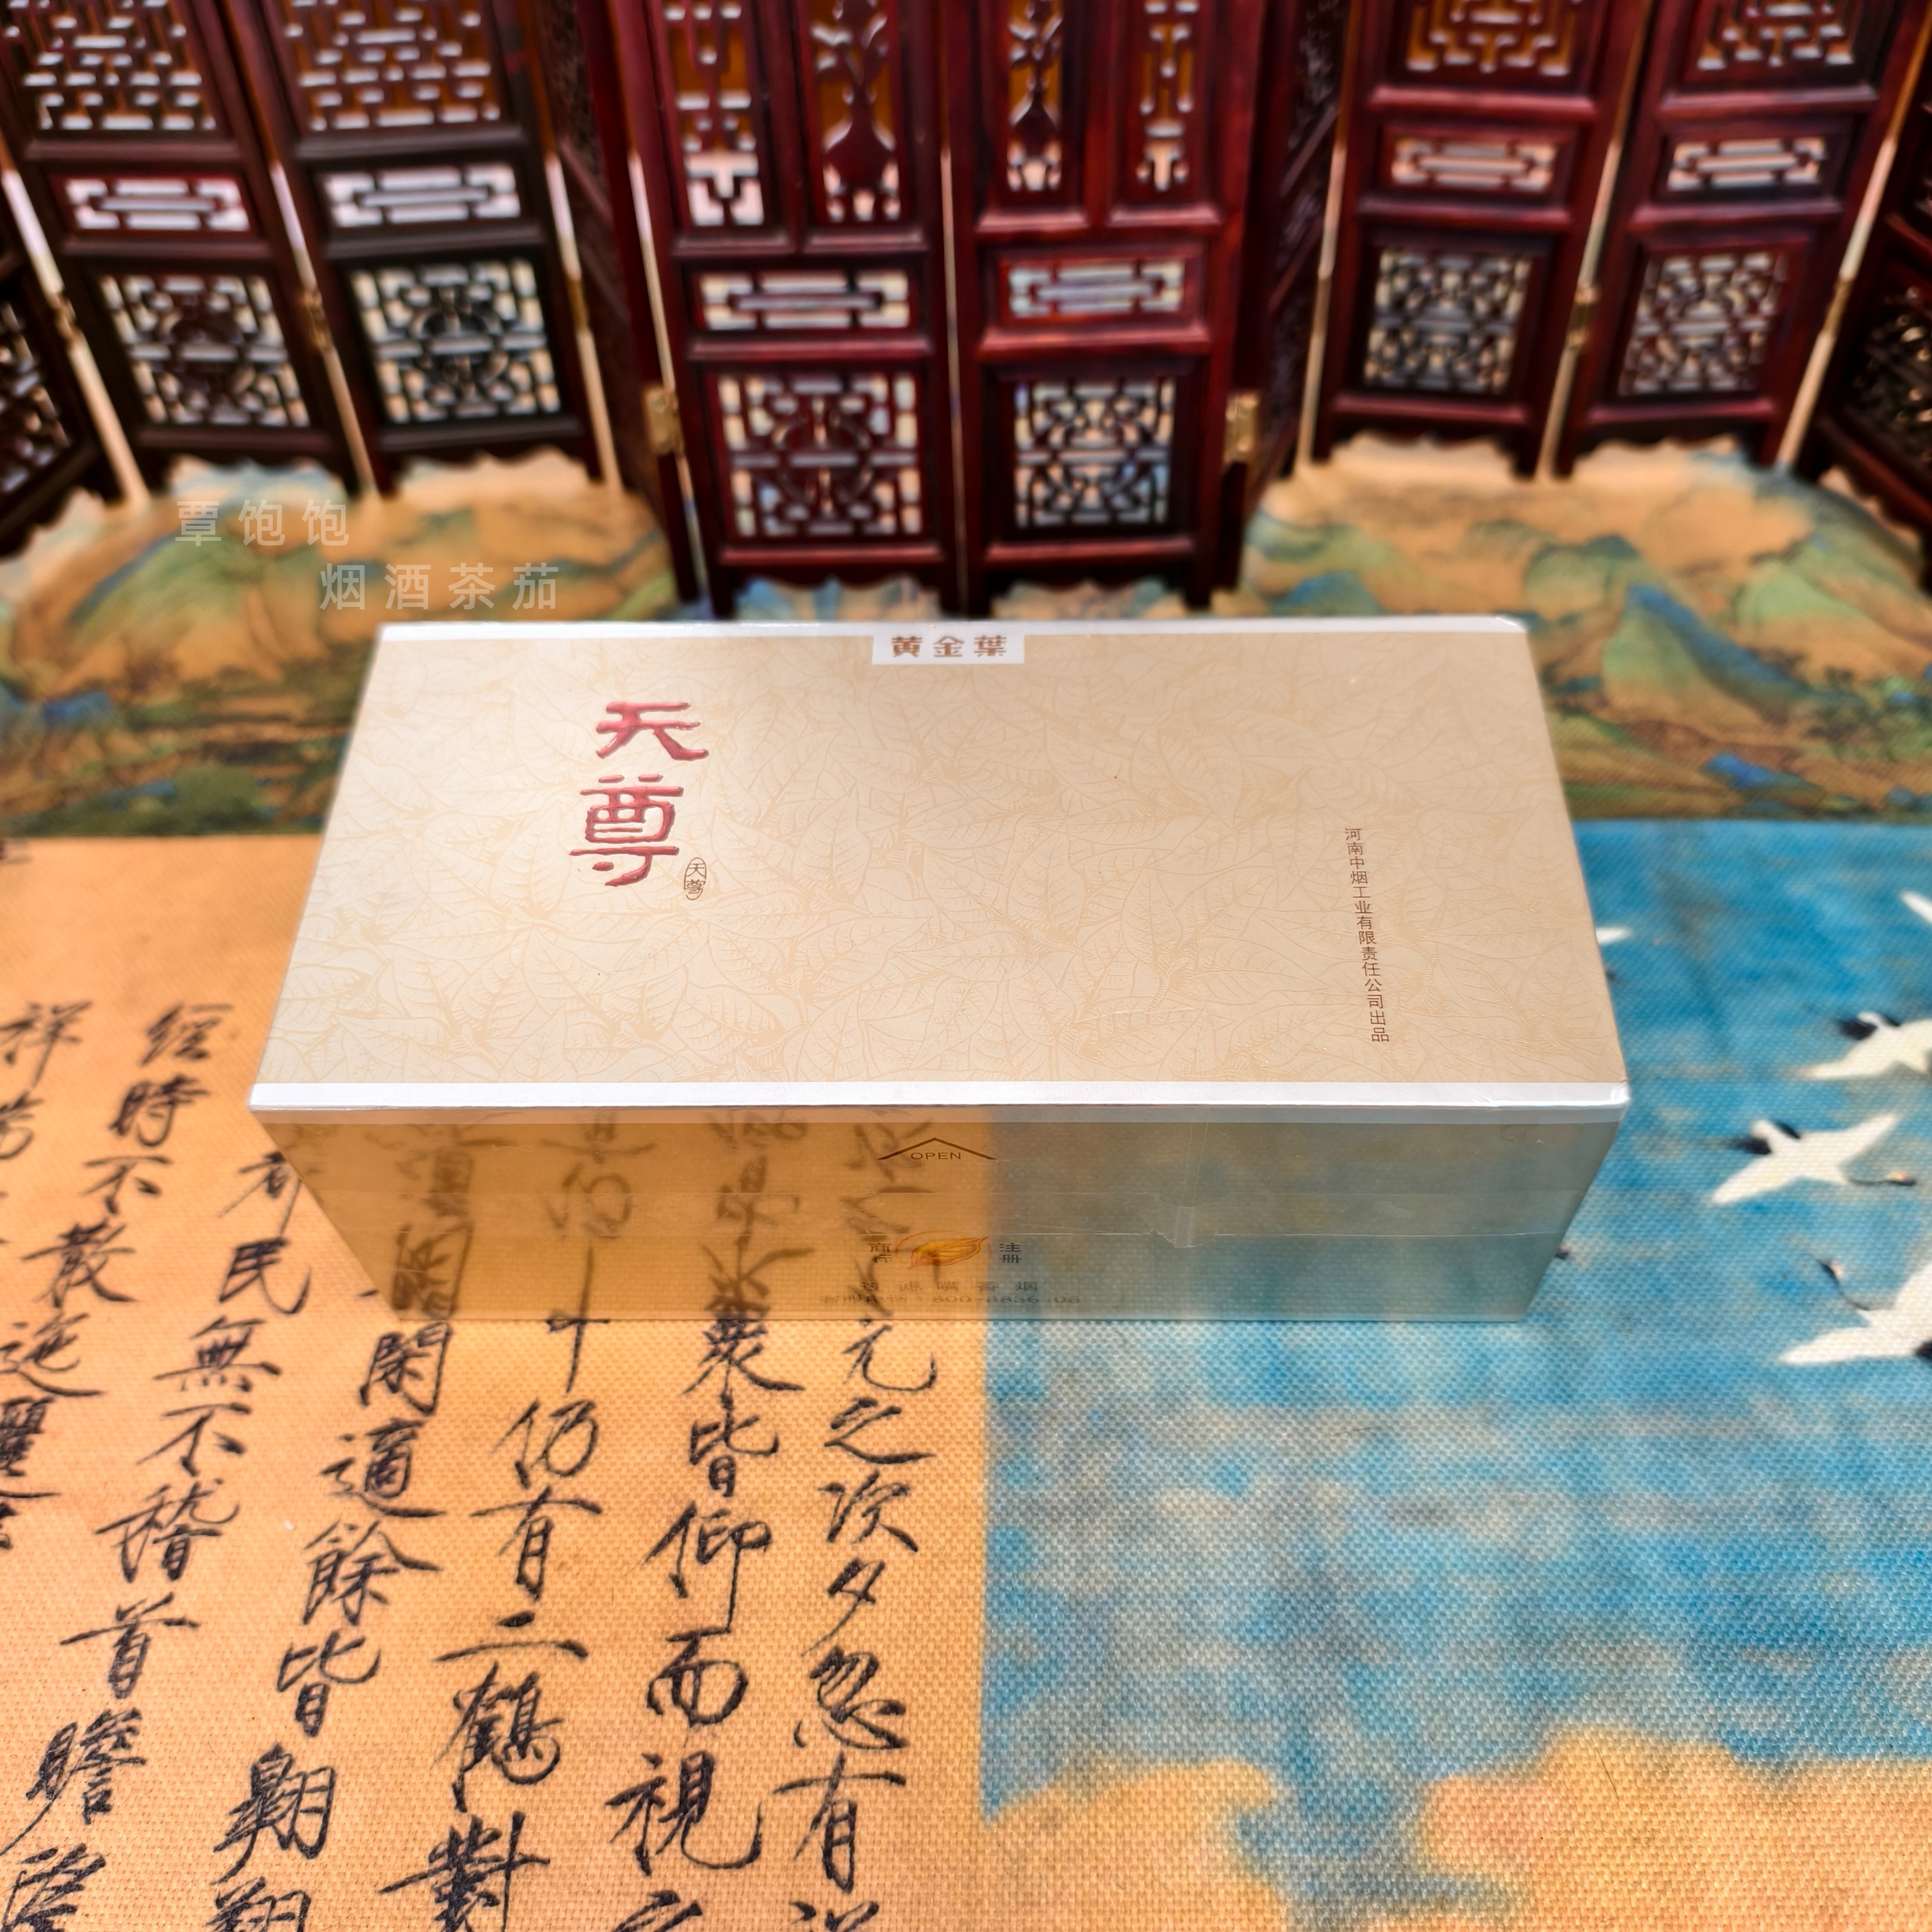 覃饱饱
烟酒茶茄
黄金葉
天尊
天尊
河南中烟工业有限责任公司出品
OPEN
商标
注册
元之次夕忽有
聚皆仰而視之
仞有二鶴對
閑適餘皆翱翔
民無不稽首瞻
經時不散迤
祥